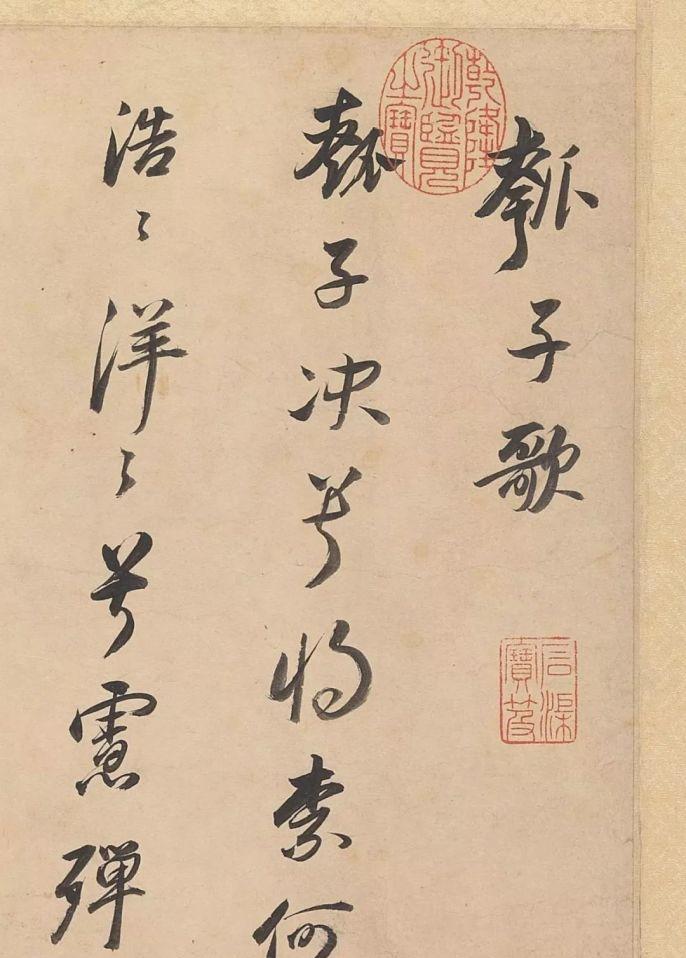 瓠子歌
瓠子决兮将柰何
浩〻洋〻兮慮殫
乾隆御覽之寶
石渠寶笈